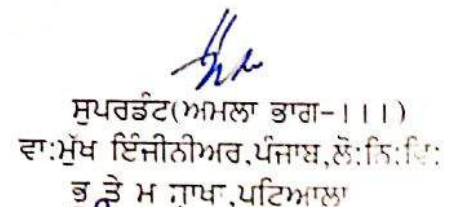 ਸੁਪਰਡੰਟ(ਅਮਲਾ ਭਾਗ-।।।)
ਵਾ:ਮੁੱਖ ਇੰਜੀਨੀਅਰ,ਪੰਜਾਬ,ਲੋ:ਨਿ:ਵਿ:
ਭ ਤੇ ਮ ਸ਼ਾਖਾ,ਪਟਿਆਲਾ